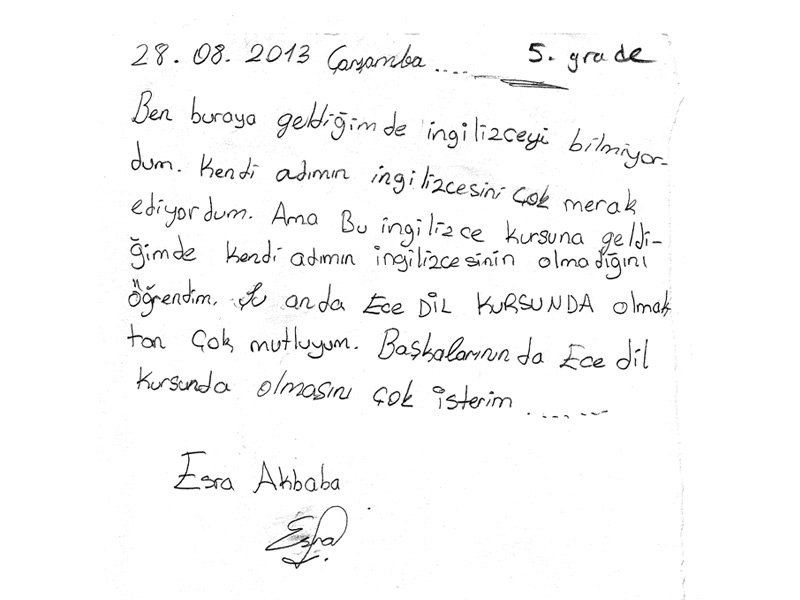 28. 08. 2013 Çarşamba ..... 5. grade
Ben buraya geldiğimde ingilizceyi bilmiyor-
dum. Kendi adımın ingilizcesini çok merak
ediyordum. Ama Bu ingilizce kursuna geldi-
ğimde kendi adımın ingilizcesinin olmadığını
öğrendim. Şu anda Ece DİL KURSUNDA olmak
tan çok mutluyum. Başkalarınında Ece dil
kursunda olmasını çok isterim ......
Esra Akbaba
Esra